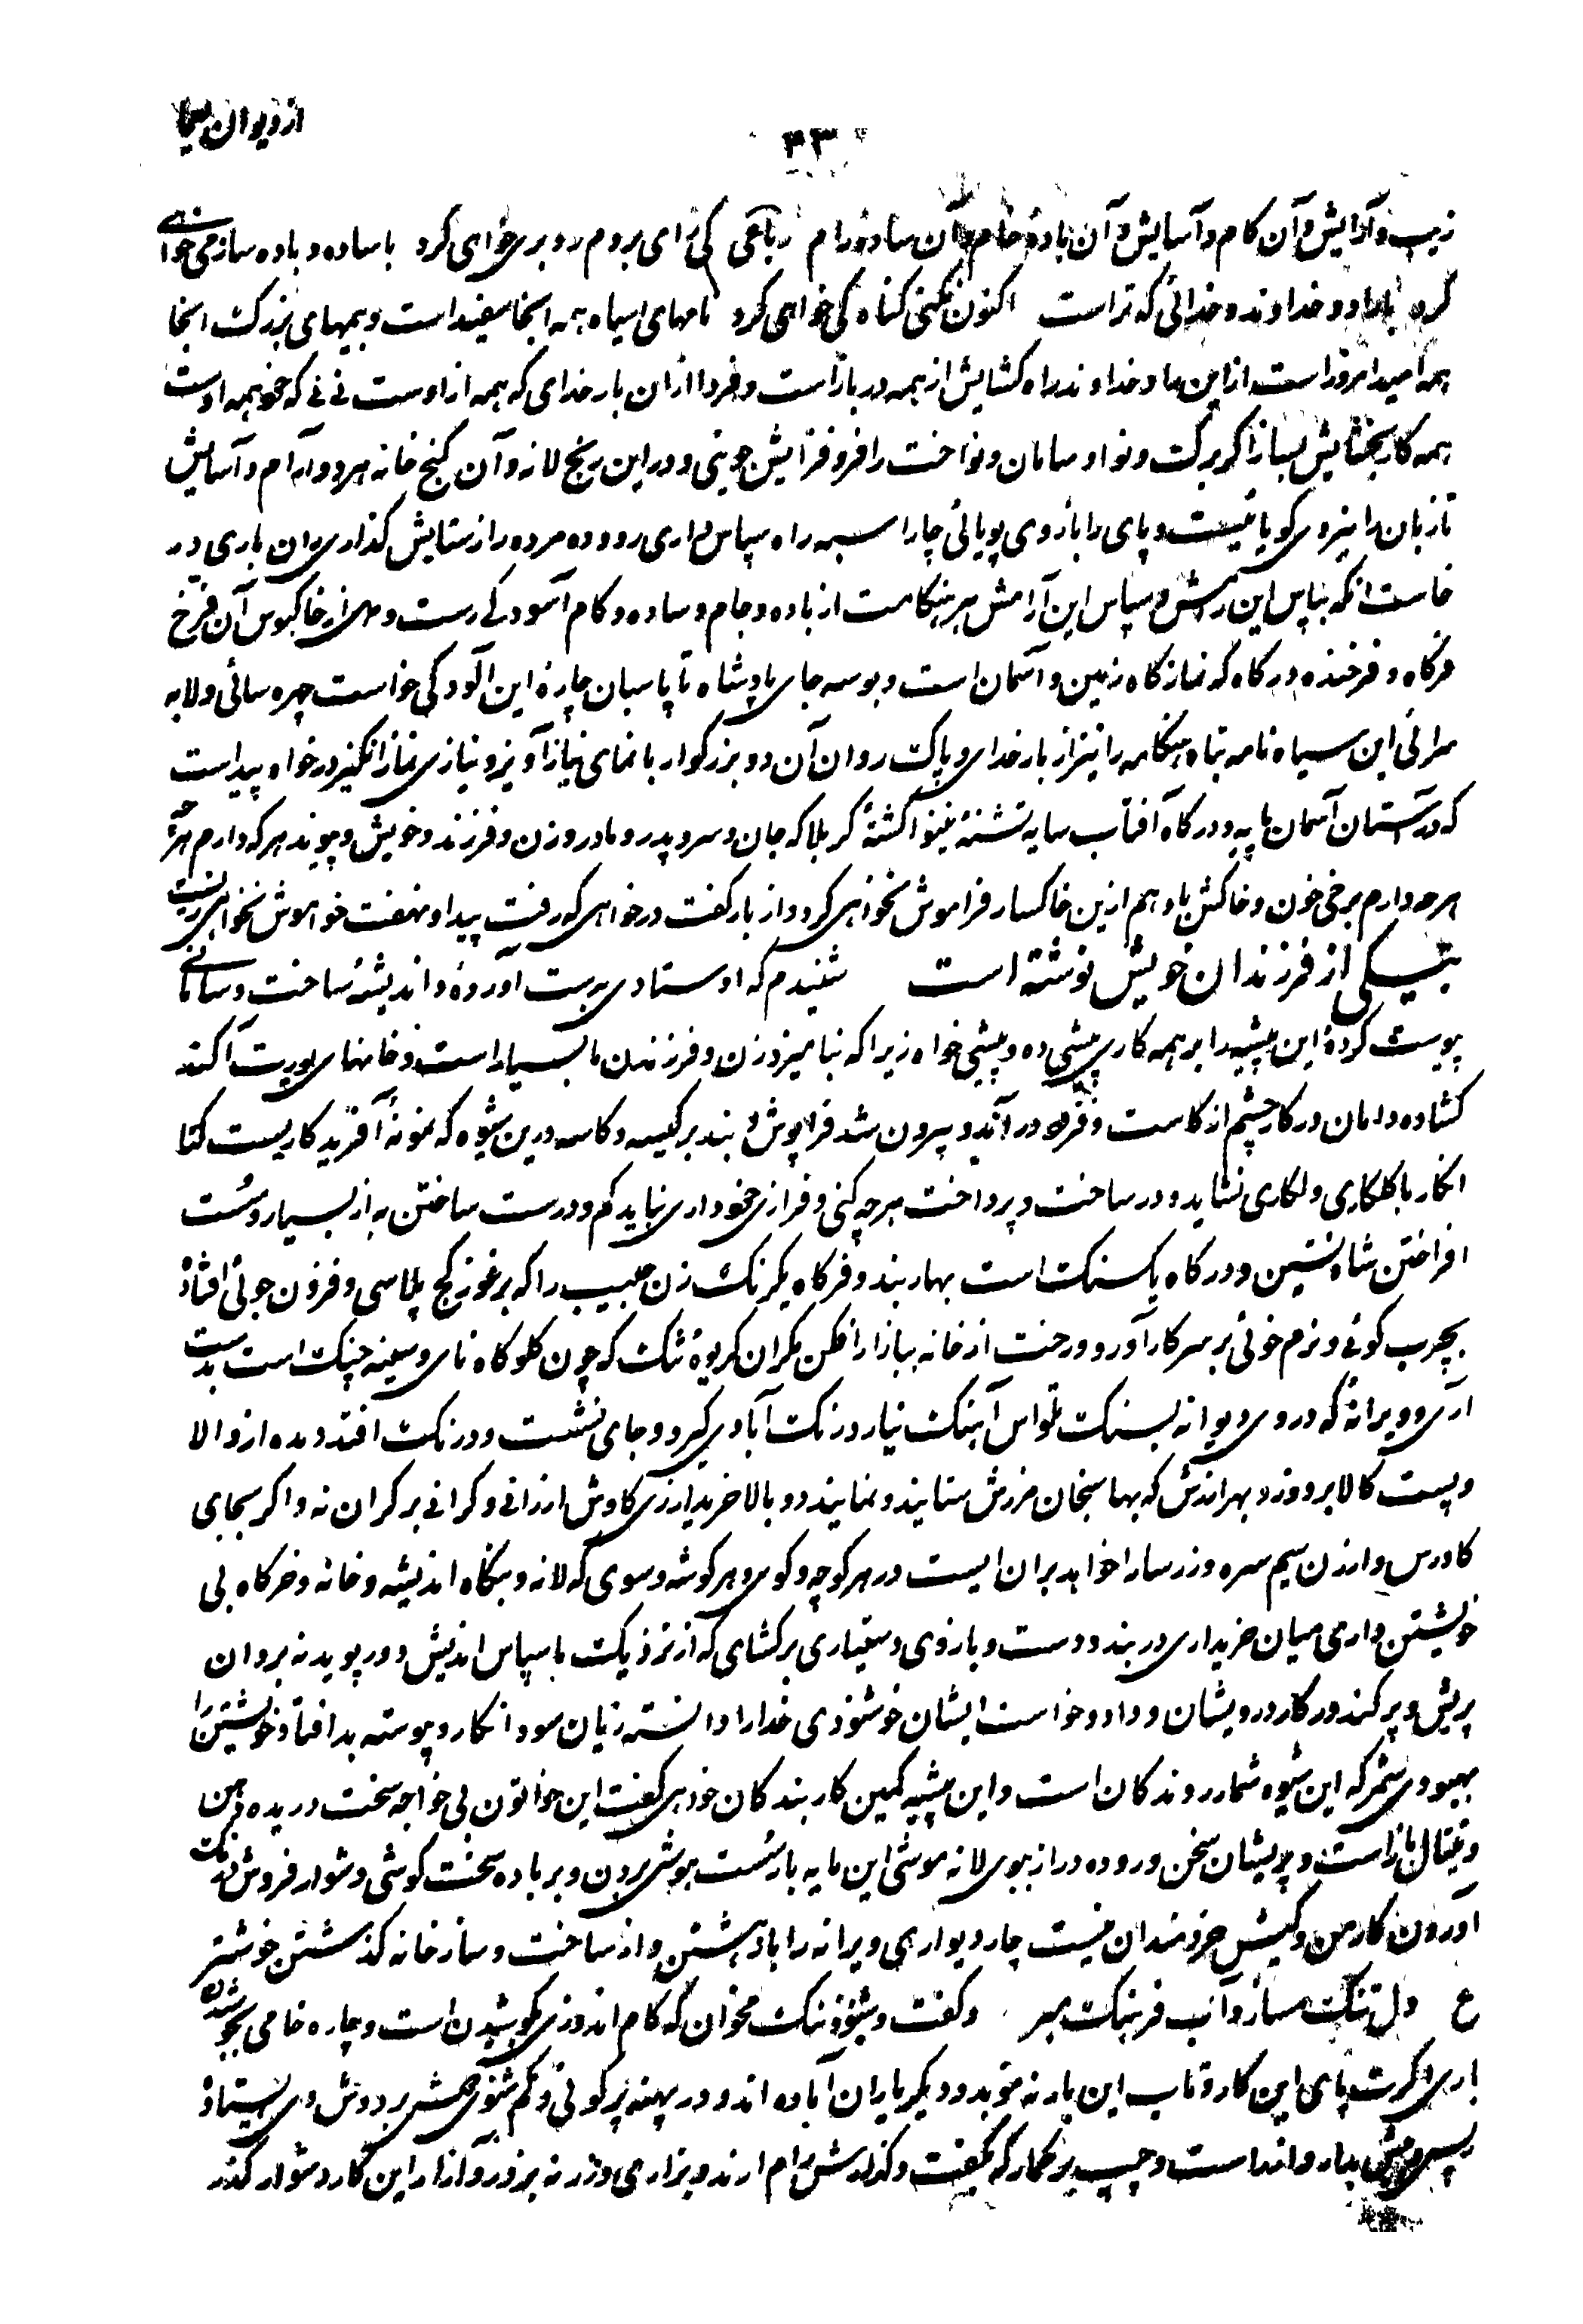 از دیوان یغما
۳۳
زیب و آرایش و آن کام و آسایش و آن باده جام و آن ساده رام رباعی کی رای بروم رو بری خواهی کرد با ساده و باده ساز می خواهی
کرد با داد و خداوند و خدائی که تراست اکنون نکنی کناه کی خواهی کرد نامهای سیاه همه اینجا سفید است و بیمهای بزرک اینجا
همه امید امروز است از این داد خداوند راه کشایش از همه در باز است و فردا از آن بار خدای که همه از اوست نی نی که خود همه اوست
همه کار بخشایش بساز اکر برک و نوا و سامان و نواخت را فرو فزایش جوئی و در این رنج لانه و آن کنج خانه هر دو آرام و آسایش
تا زبان را نیروی کویائیست و پای را بازوی پویائی چار اسبه راه سپاس داری رو و ده مرده راز ستایش کذاری ران باری در
خاست انکه بپاس این رامش و سپاس این آرامش هر هنکامت از باده و جام و ساده و کام آسودکی رست و هوای خاکبوس آن فرخ
فرکاه و فرخنده درکاه که نماز کاه زمین و آسمان است و بوسه جای پادشاه تا پاسبان چاره این آلودکی خواست چهره سائی و لابه
سرائی این سیاه نامه تباه هنکامه را نیز از بار خدای و پاک روان آن دو بزرکوار با نمای نیاز آویز و نیازی نماز انکیز درخواه پیداست
که در آستان آسمان پایه و درکاه آفتاب سایه تشنه بینوا کشته کربلا که جان و سر و پدر و مادر و زن و فرزند و خویش و پیوند هر که دارم و هر
هر چه دارم برخی خون و خاکش باد هم ازین خاکسار فراموش نخواهی کرد و از بار کفت درخواهی که رفت پیدا و نهفت خواموش نخواهی زیست
بیکی از فرزندان خویش نوشته است شنیدم که اوستادی بدست آورده و اندیشه ساخت و سامانی
پیوست کرده این پیشه را بر همه کاری پیشی ده و بیشی خواه زیرا که بنامیزد زن و فرزندان ما بسیار است و خانهای پوریت آکند
کشاده دامان در کار چشم از کاست و فره در آمد و بیرون شد فراپوش و بند بر کیسه و کاسه درین شیوه که نمونه آفرید کاریست کتا
انکار با کلکاری و لکاری نشاید و در ساخت و پرداخت هر چه کنی و فرازی خودداری نباید کم و درست ساختن به از بسیار و سست
افراختن شاه نشین و درکاه یکسنک است بهار بند و فرکاه یکرنک زن حبیب را که بر غوز کج پلاسی و فزون جوئی افتاد
بچرب کوئی و نرم خوئی بر سر کار آور و درخت از خانه ببازار افکن مکر آن کریوه تنک که چون کلوکاه نای و سینه چنک است بدست
آری و ویرانه که در وی دیوانه بسنک تلواس آهنک نیارد رنک آبادی کیرد و جای نشست و درنک افتد و ده از والا
و پست کالا بر و وزد بهر ارزش که بها سنجان مرزش ستایند و نمایند دو بالا خریدار زی کاوش ارزانی و کرانی بر کران نه و اکر بجای
کاورس و ارزن سیم سره و زر سارا خواهد بر آن ایست در هر کوچه و کوی و هر کوشه و سوی که لانه و بنکاه اندیشه و خانه و خرکاه بی
خویشتن داری میان خریداری در بند و دست و بازوی دستیاری بر کشای که از نزدیک با سپاس اندیش و دور پوید نه بر دان
پریش و پرکند در کار درویشان و داد و خواست ایشان خوشنودی خدا را دانسته زیان سود انکار و پیوسته بد افتاد خویشتن را
بهبودی شمر که این شیوه شمار روندکان است و این پیشه کمین کار بندکان خود همی کفت این خواتون بی خواجه سخت دریده دهن
و تیتال باز است و پریشان سخن و روده دراز ببوی لانه موشی این مایه بار سست هوشی بردن و بر باده سخت کوشی و دشوار فروش درنک
آوردن کار من و کیش خردمندان نیست چار دیواری ویرانه را باد بهشتن و از ساخت و ساز خانه کذشتن خوشتر
ع دل تنک مساز و آب فرهنک مبر و کفت و شنود ننک مخوان که کام اندوزی بکوشیدن است و چاره خامی بجوشیدن
باری اکرت پای این کار و تاب این بار نه متوبد و دیکر یاران آباده اند و در پهنه پر کوئی و کم شنوی همش بر دوش وی ایستاده
است و چسب بر کمار که بکفت و کذارش رام ارند و بزاری و زر نه بزور و آزار این کار دشوار کذر